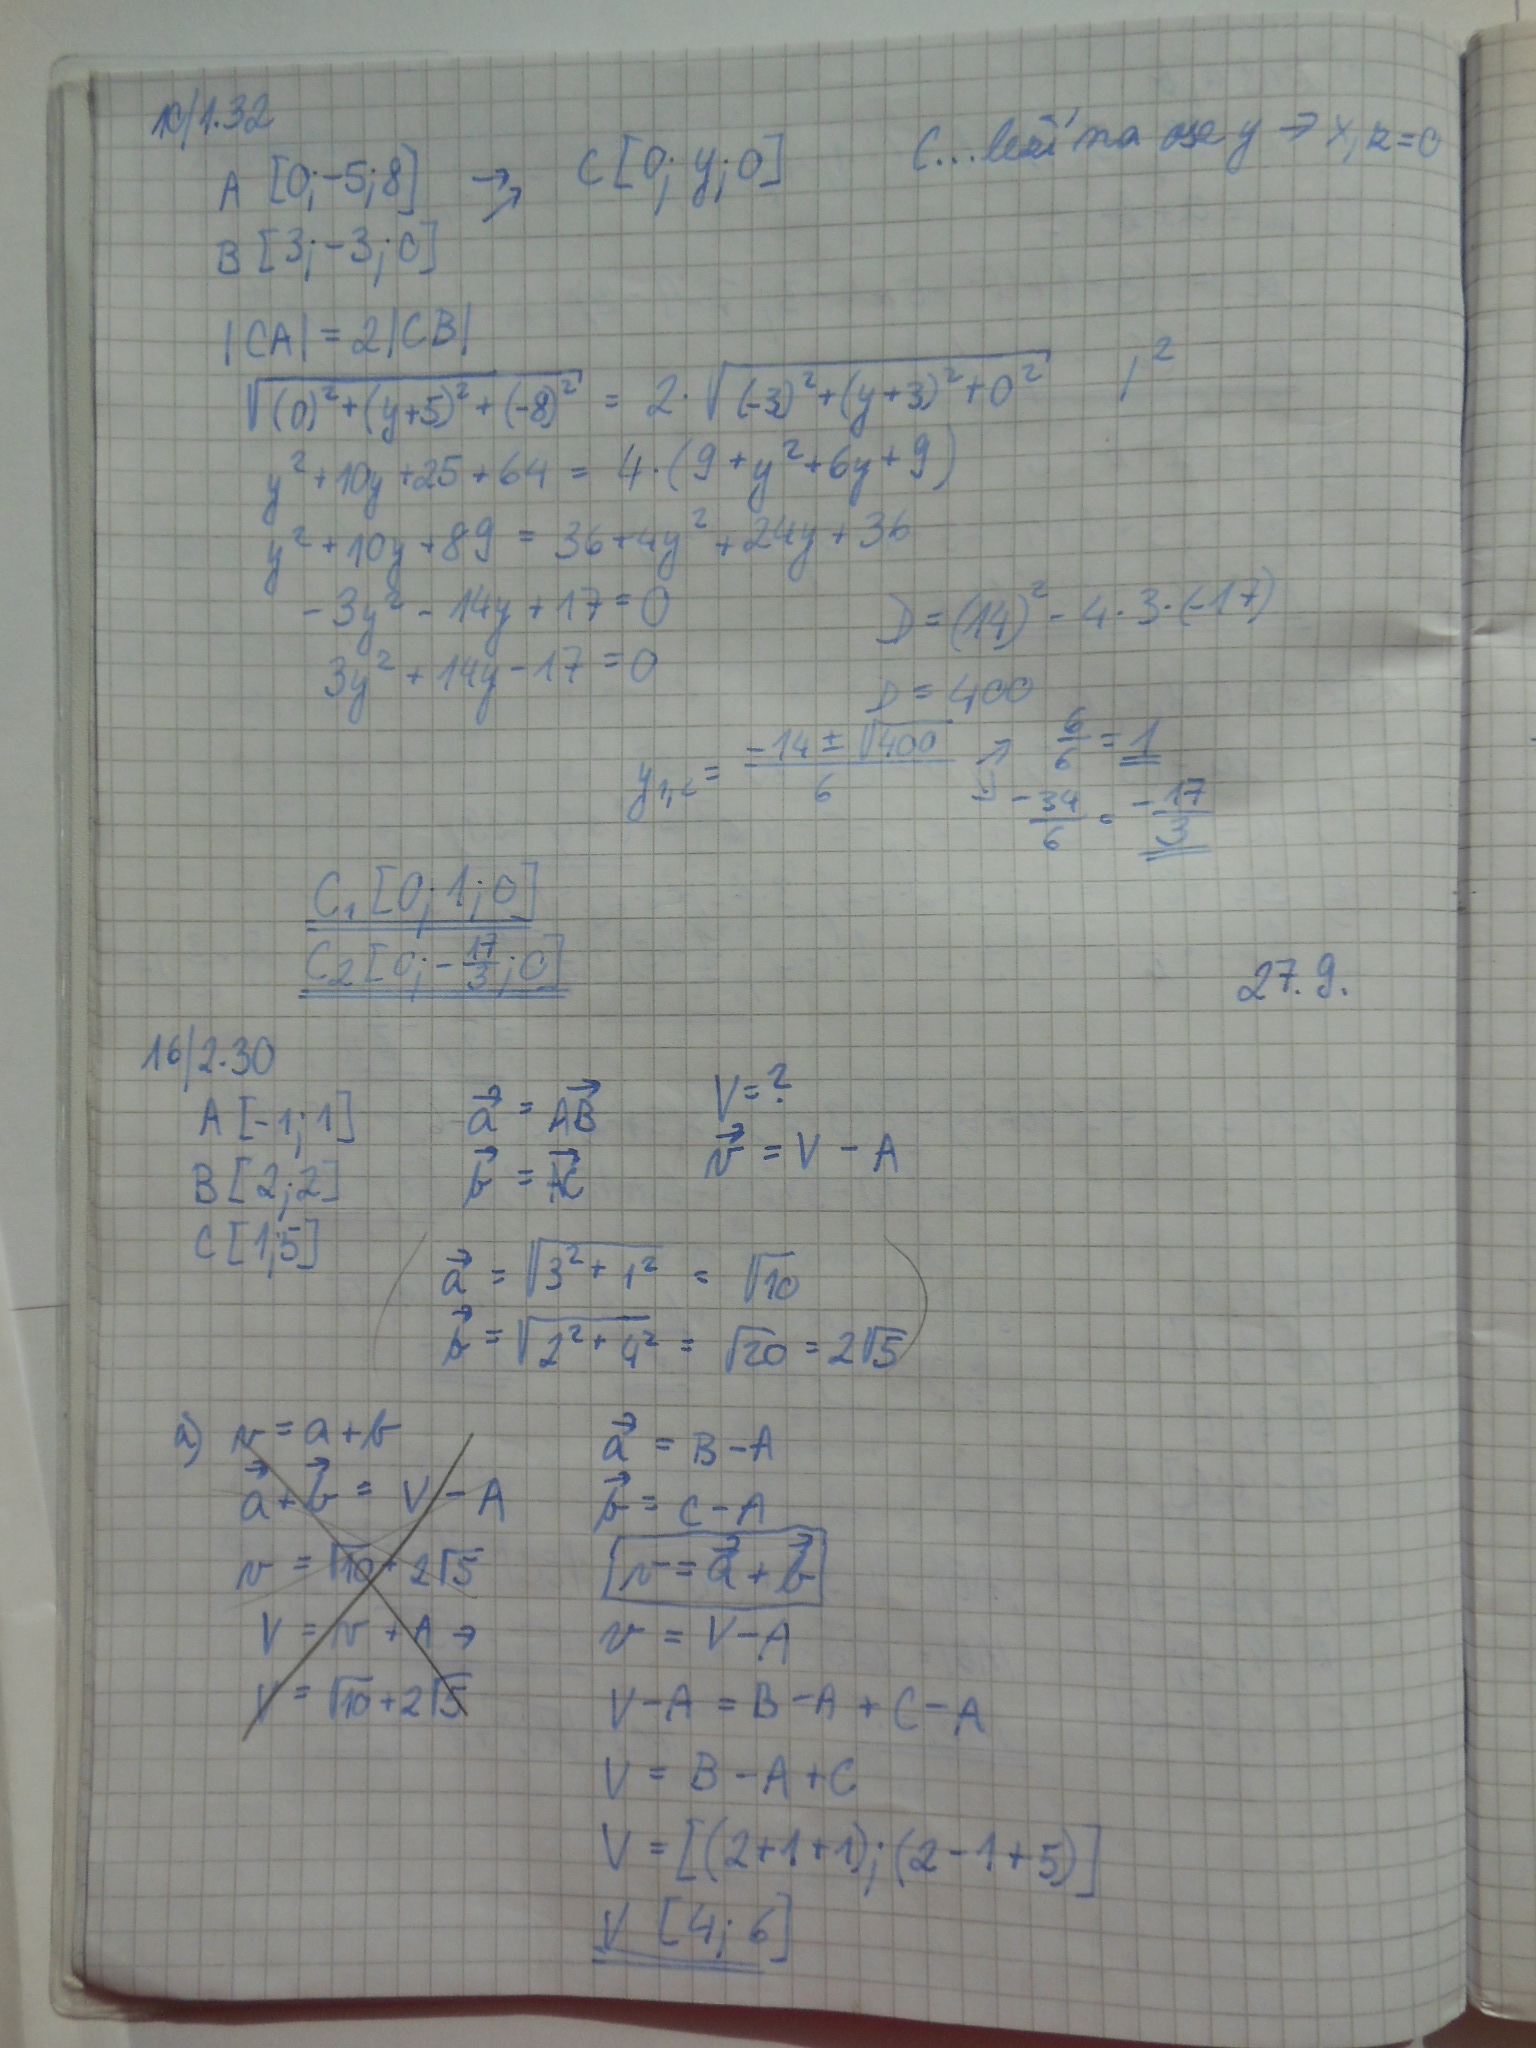 10/1.32
A [0;-5;8] → C [0; y; 0] C...leží na ose y → x, z = 0
B [3;-3;0]
|CA| = 2|CB|
√((0)² + (y+5)² + (-8)²) = 2·√((-3)² + (y+3)² + 0²) /²
y² + 10y + 25 + 64 = 4·(9 + y² + 6y + 9)
y² + 10y + 89 = 36 + 4y² + 24y + 36
-3y² - 14y + 17 = 0
D = (14)² - 4·3·(-17)
3y² + 14y - 17 = 0
D = 400
y₁,₂ = (-14 ± √400)/6 → 6/6 = 1
→ -34/6 = -17/3
C₁ [0; 1; 0]
C₂ [0; -17/3; 0]
27. 9.
16/2.30
A [-1; 1] a⃗ = AB⃗ V = ?
B [2; 2] b⃗ = AC⃗ v⃗ = V - A
C [1; 5]
a⃗ = √(3² + 1²) = √10
b⃗ = √(2² + 4²) = √20 = 2√5
a) v = a + b
a⃗ + b⃗ = V - A
v = √10 + 2√5
V = v + A →
V = √10 + 2√5
a⃗ = B - A
b⃗ = C - A
v = a⃗ + b⃗
v = V - A
V - A = B - A + C - A
V = B - A + C
V = [(2+1+1); (2-1+5)]
V [4; 6]